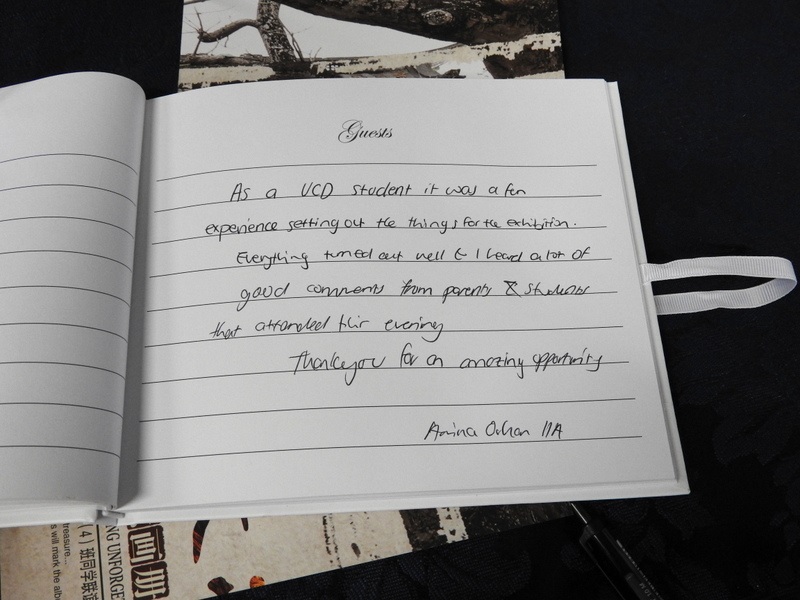 Guests
As a VCD student it was a fun
experience setting out the things for the exhibition.
Everything turned out well & I heard a lot of
good comments from parents & students
that attended this evening
Thankyou for an amazing opportunity
Amina 11A
treasure...
s will mark the alb
NG UNFORGET
（4）班同学联
画册